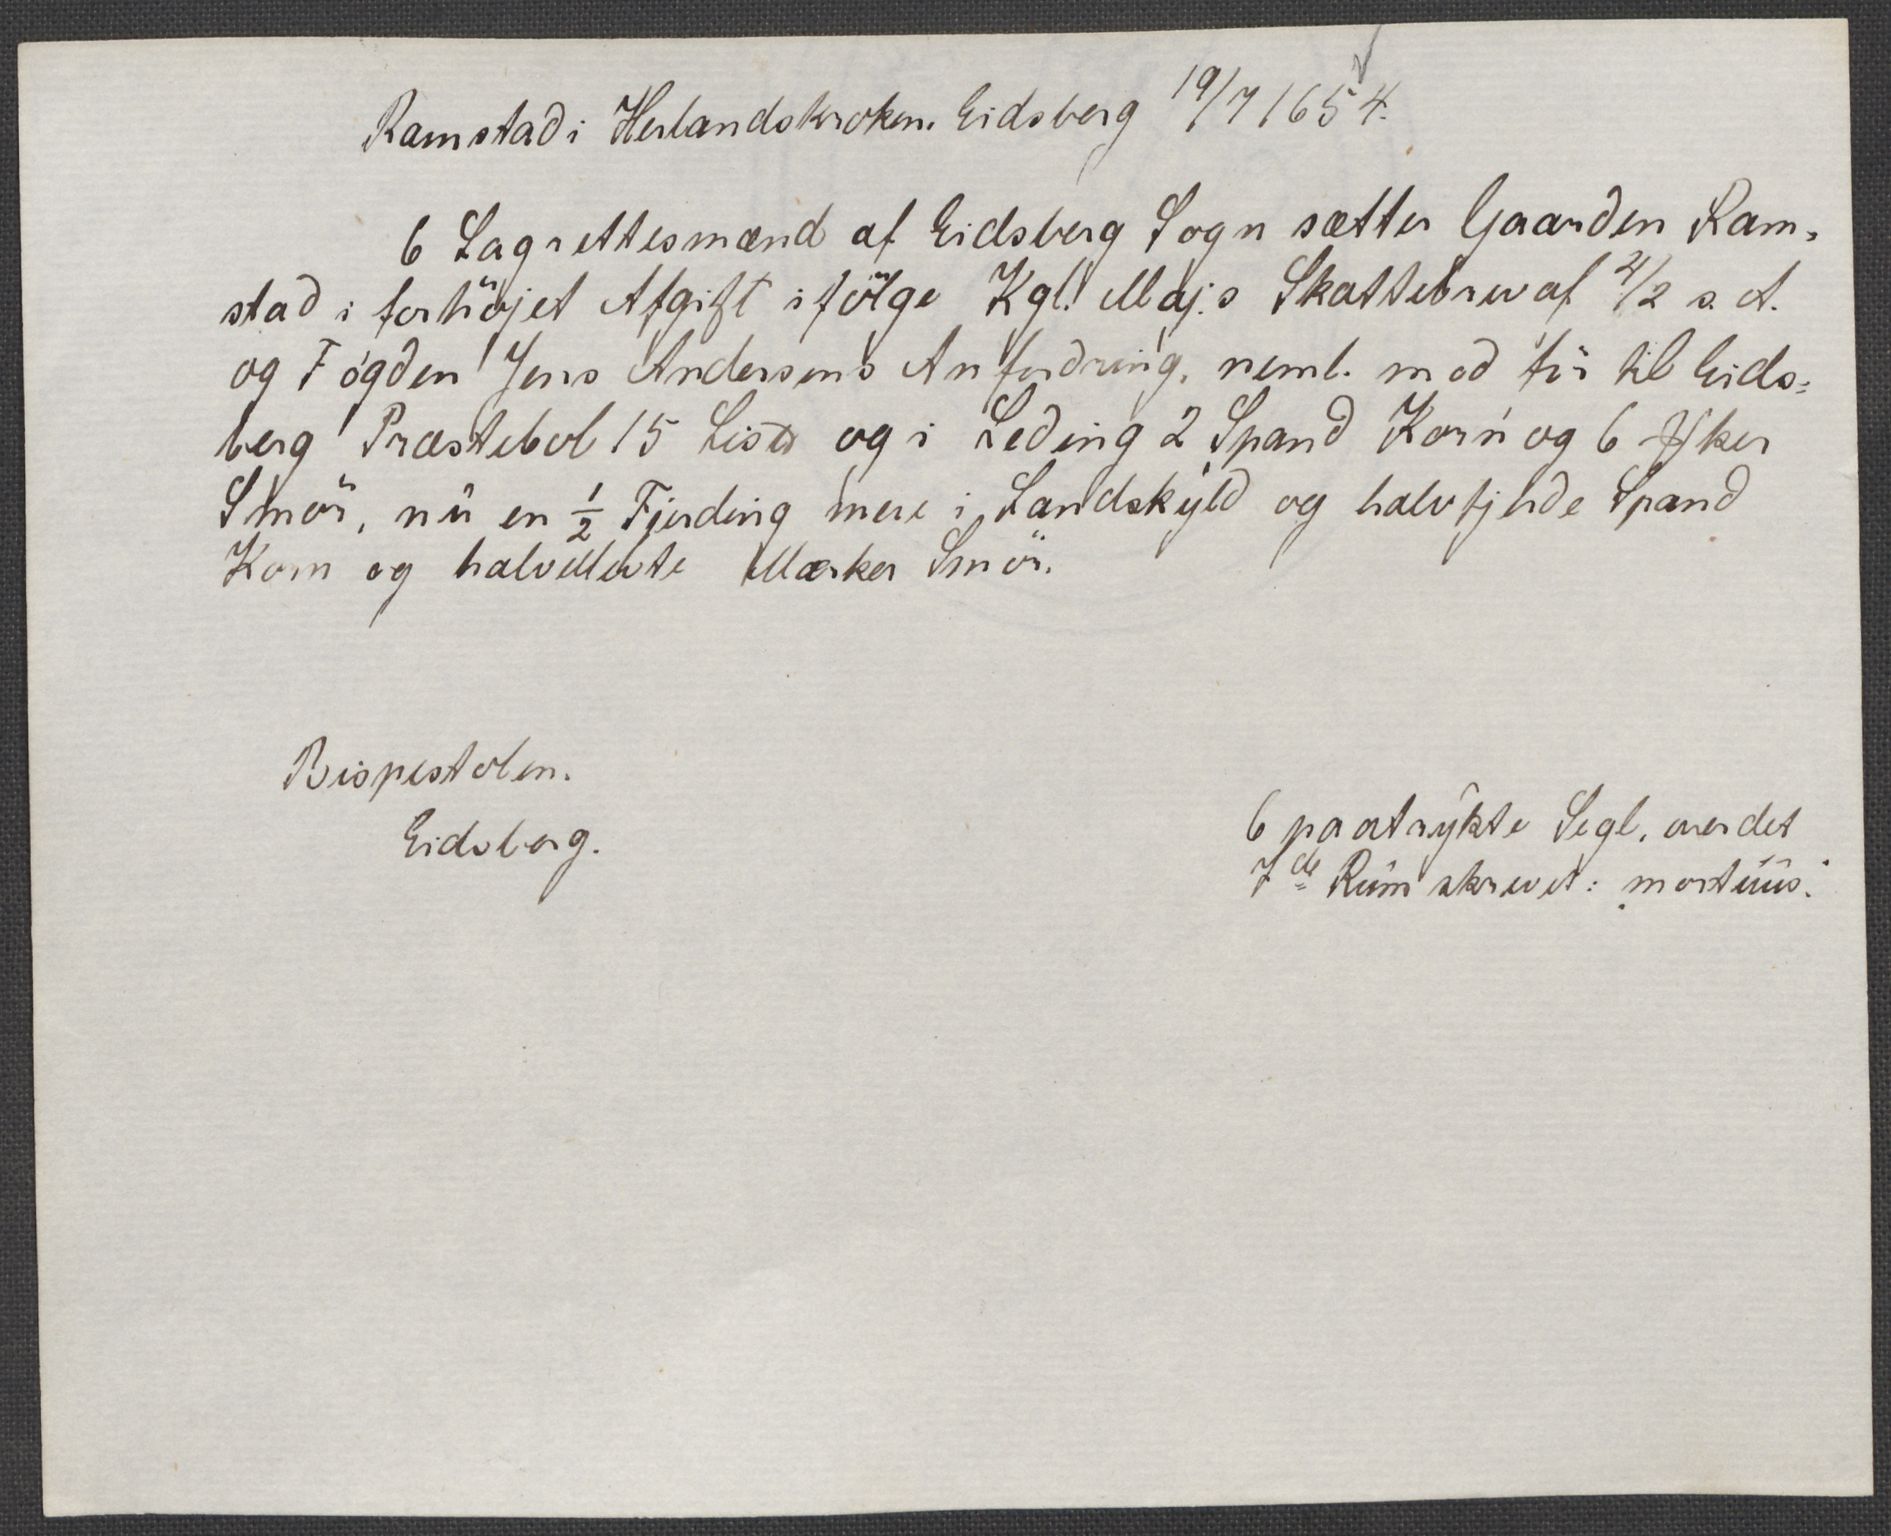 Ramstad i Herlandskroken. Eidsberg 19/7 1654.
6 Lagrettesmænd af Eidsberg Sogn sætter Gaarden Ram-
stad i forhöjet Afgift ifölge Kgl. Maj.s Skattebrev af 21/2 s. A.
og Fógden Jens Andersens Anfordring, neml. mod för til Eids-
berg Præstebol 15 Lis℔ og i Leding 2 Spand Korn og 6 Mker
Smör, nu en 1/2 Fjerding mere i Landskyld og halvfjerde Spand
Korn og halvellevte Mærker Smör.
Bispestolen.
Eidsberg.
6 paatrykte Segl, over det
7de Rum skrevet: mortuus.